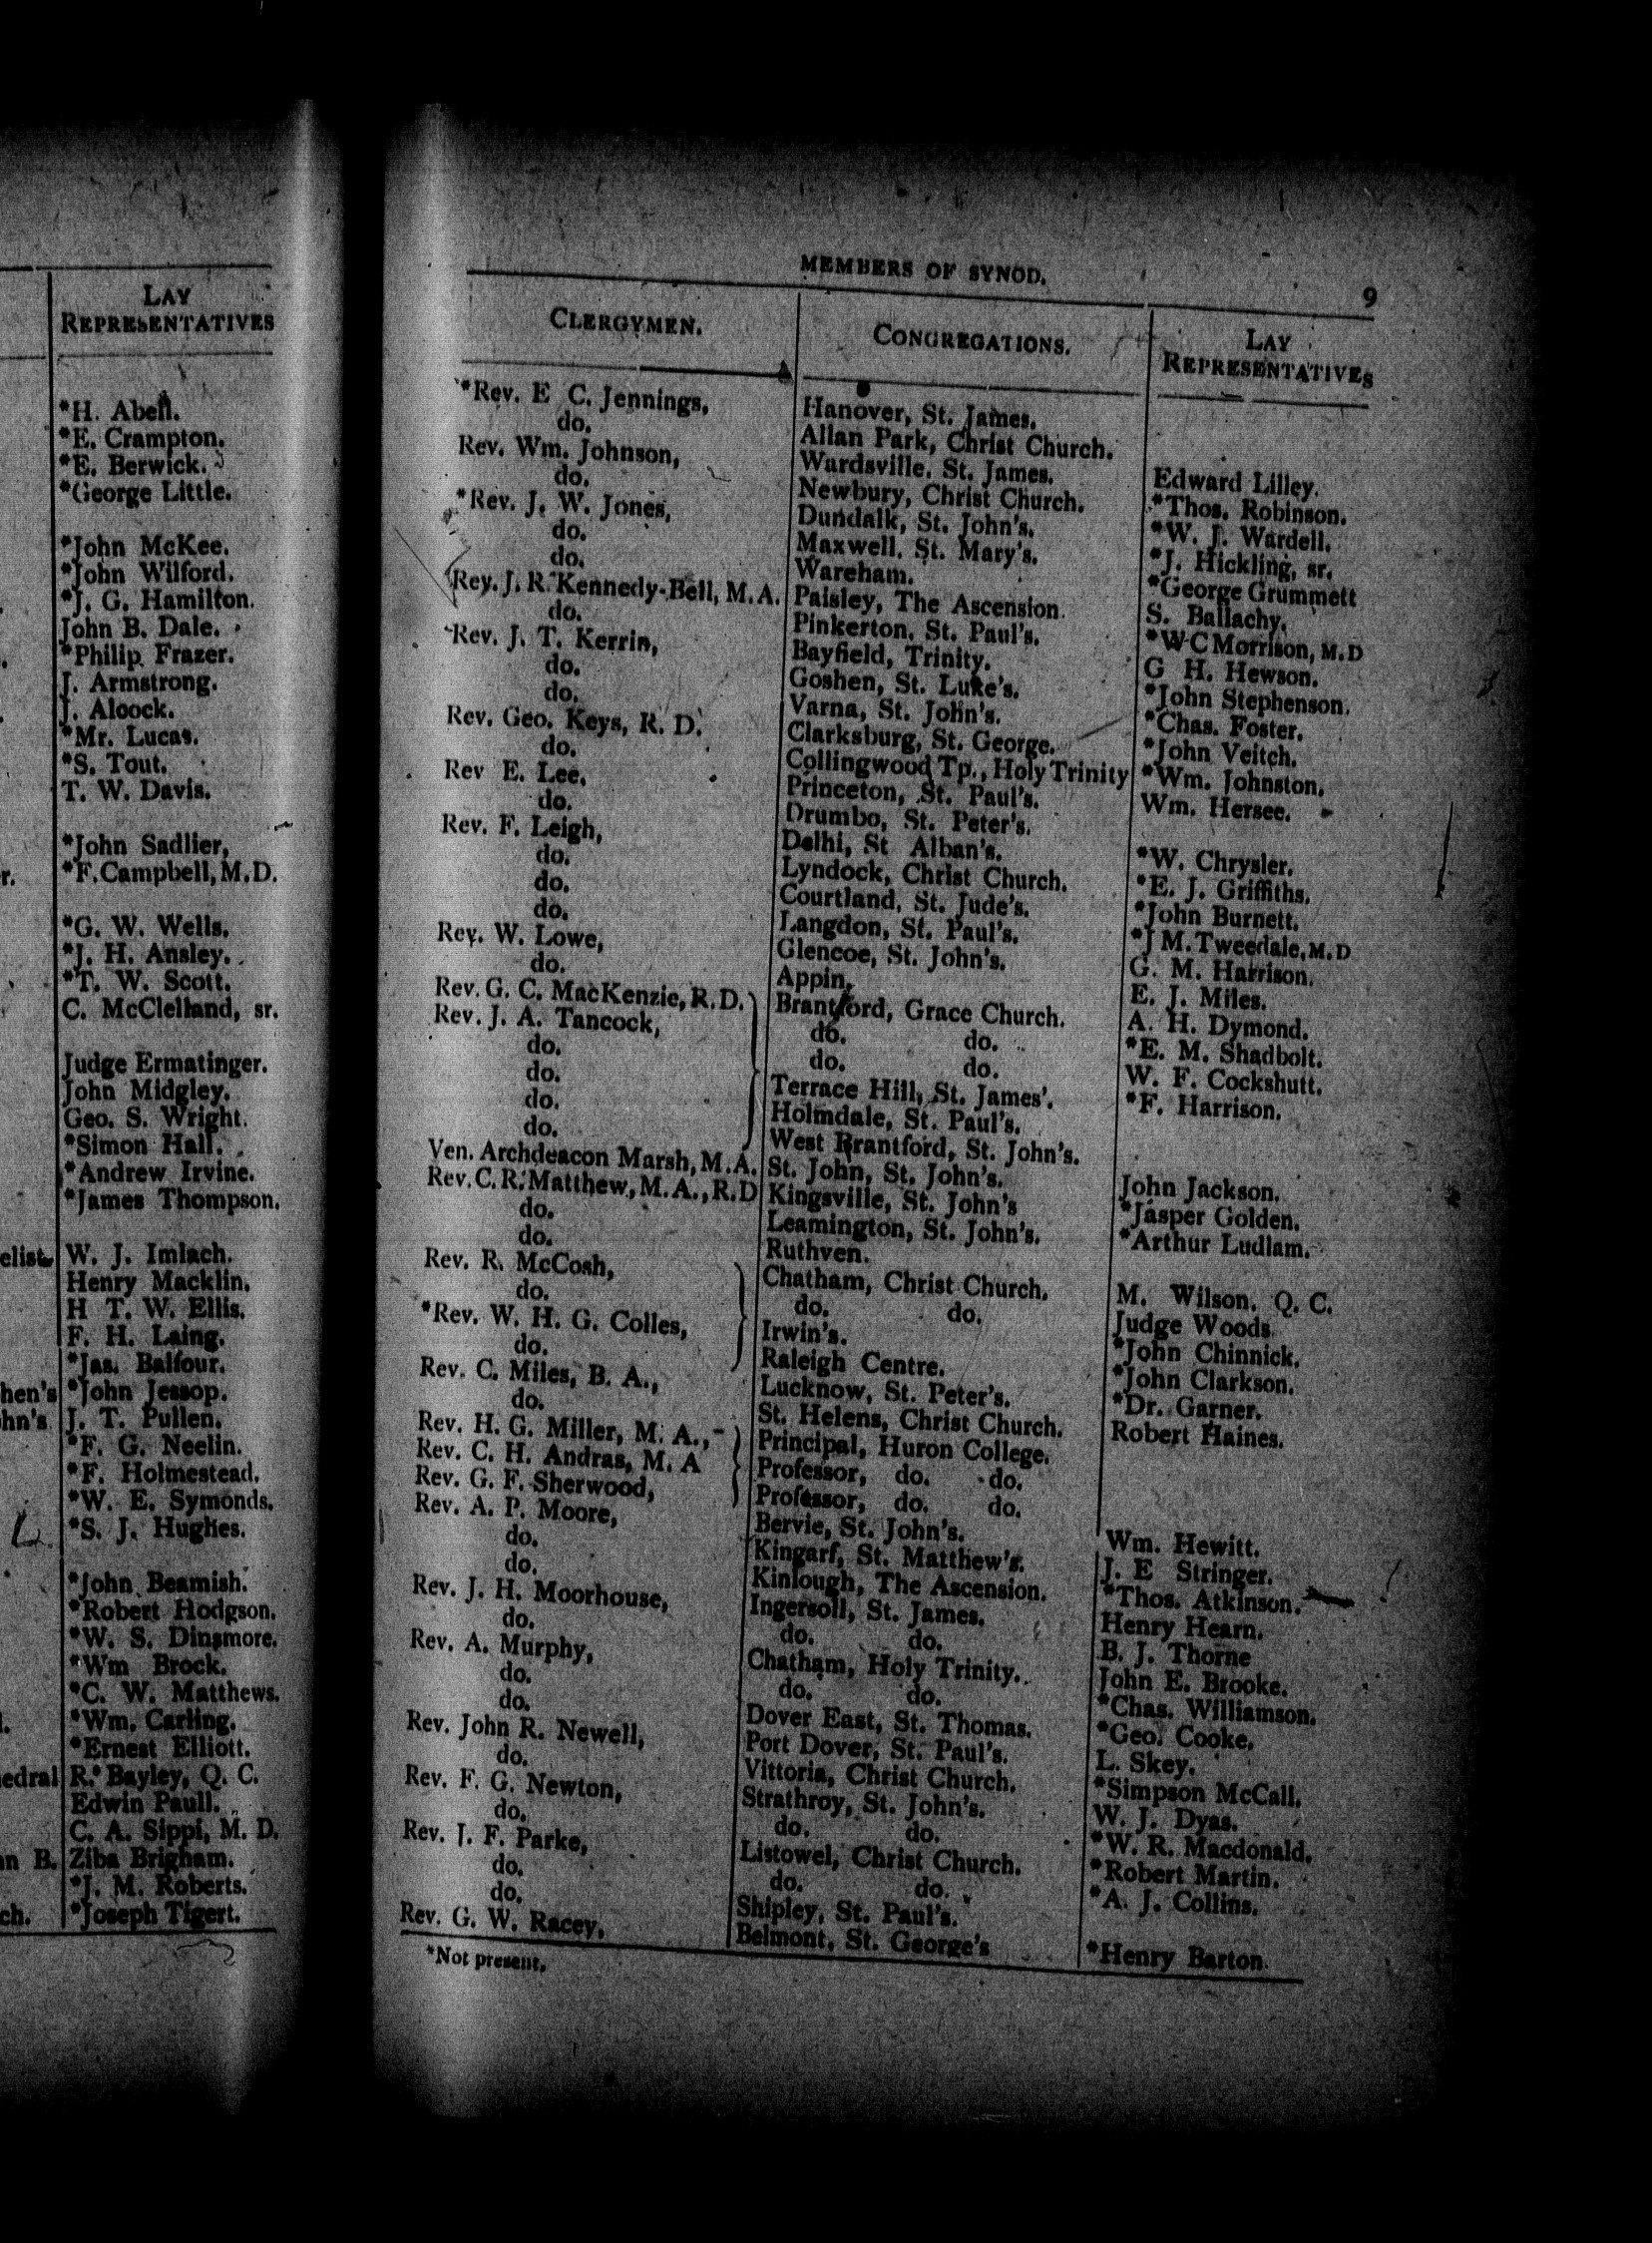 LAY
REPRESENTATIVES
*H. Abell.
*E. Crampton.
*E. Berwick.
*George Little.
*John McKee.
*John Wilford.
*J. G. Hamilton.
John B. Dale.
*Philip Frazer.
J. Armstrong.
J. Alcock.
*Mr. Lucas.
*S. Tout.
T. W. Davis.
*John Sadlier,
r. *F. Campbell, M.D.
*G. W. Wells.
*J. H. Ansley.
*T. W. Scott.
C. McClelland, sr.
Judge Ermatinger.
John Midgley.
Geo. S. Wright.
*Simon Hall.
*Andrew Irvine.
*James Thompson.
elist. W. J. Imlach.
Henry Macklin.
H T. W. Ellis.
F. H. Laing.
*Jas. Balfour.
hen's *John Jessop.
hn's J. T. Pullen.
*F. G. Neelin.
*F. Holmestead.
*W. E. Symonds.
*S. J. Hughes.
*John Beamish.
*Robert Hodgson.
*W. S. Dinsmore.
*Wm Brock.
*C. W. Matthews.
*Wm. Carling.
*Ernest Elliott.
edral R. Bayley, Q. C.
Edwin Paull.
C. A. Sippi, M. D.
n B. Ziba Brigham.
*J. M. Roberts.
ch. *Joseph Tigert.
MEMBERS OF SYNOD. 9
CLERGYMEN. CONGREGATIONS. LAY
REPRESENTATIVES
*Rev. E C. Jennings, Hanover, St. James.
do. Allan Park, Christ Church.
Rev. Wm. Johnson, Wardsville, St. James. Edward Lilley.
do. Newbury, Christ Church. *Thos. Robinson.
*Rev. J. W. Jones, Dundalk, St. John's. *W. J. Wardell.
do. Maxwell, St. Mary's. *J. Hickling, sr.
do. Wareham. *George Grummett
Rev. J. R. Kennedy-Bell, M.A. Paisley, The Ascension. S. Ballachy.
do. Pinkerton, St. Paul's. *W C Morrison, M.D
*Rev. J. T. Kerrin, Bayfield, Trinity. G H. Hewson.
do. Goshen, St. Luke's. *John Stephenson.
do. Varna, St. John's. *Chas. Foster.
Rev. Geo. Keys, R. D. Clarksburg, St. George. *John Veitch.
do. Collingwood Tp., Holy Trinity *Wm. Johnston.
Rev E. Lee, Princeton, St. Paul's. Wm. Hersee.
do. Drumbo, St. Peter's.
Rev. F. Leigh, Delhi, St Alban's. *W. Chrysler.
do. Lyndock, Christ Church. *E. J. Griffiths.
do. Courtland, St. Jude's. *John Burnett.
do. Langdon, St. Paul's. *J M. Tweedale, M.D
Rev. W. Lowe, Glencoe, St. John's. G. M. Harrison.
do. Appin. E. J. Miles.
Rev. G. C. MacKenzie, R.D. Brantford, Grace Church. A. H. Dymond.
Rev. J. A. Tancock, do. do. *E. M. Shadbolt.
do. do. do. W. F. Cockshutt.
do. Terrace Hill, St. James'. *F. Harrison.
do. Holmdale, St. Paul's.
do. West Brantford, St. John's.
Ven. Archdeacon Marsh, M.A. St. John, St. John's. John Jackson.
Rev. C. R. Matthew, M.A., R.D Kingsville, St. John's *Jasper Golden.
do. Leamington, St. John's. *Arthur Ludlam.
do. Ruthven.
Rev. R. McCosh, Chatham, Christ Church. M. Wilson, Q. C.
do. do. do. Judge Woods
*Rev. W. H. G. Colles, Irwin's. *John Chinnick.
do. Raleigh Centre. *John Clarkson.
Rev. C. Miles, B. A., Lucknow, St. Peter's. *Dr. Garner.
do. St. Helens, Christ Church. Robert Haines.
Rev. H. G. Miller, M. A., Principal, Huron College.
Rev. C. H. Andras, M. A Professor, do. do.
Rev. G. F. Sherwood, Professor, do. do.
Rev. A. P. Moore, Bervie, St. John's. Wm. Hewitt.
do. Kingarf, St. Matthew's. J. E Stringer.
do. Kinlough, The Ascension. *Thos. Atkinson.
Rev. J. H. Moorhouse, Ingersoll, St. James. Henry Hearn.
do. do. do. B. J. Thorne
Rev. A. Murphy, Chatham, Holy Trinity. John E. Brooke.
do. do. do. *Chas. Williamson.
do. Dover East, St. Thomas. *Geo. Cooke.
Rev. John R. Newell, Port Dover, St. Paul's. L. Skey.
do. Vittoria, Christ Church. *Simpson McCall.
Rev. F. G. Newton, Strathroy, St. John's. W. J. Dyas.
do. do. do. *W. R. Macdonald.
Rev. J. F. Parke, Listowel, Christ Church. *Robert Martin.
do. do. do. *A. J. Collins.
do. Shipley, St. Paul's.
Rev. G. W. Racey, Belmont, St. George's *Henry Barton.
*Not present.